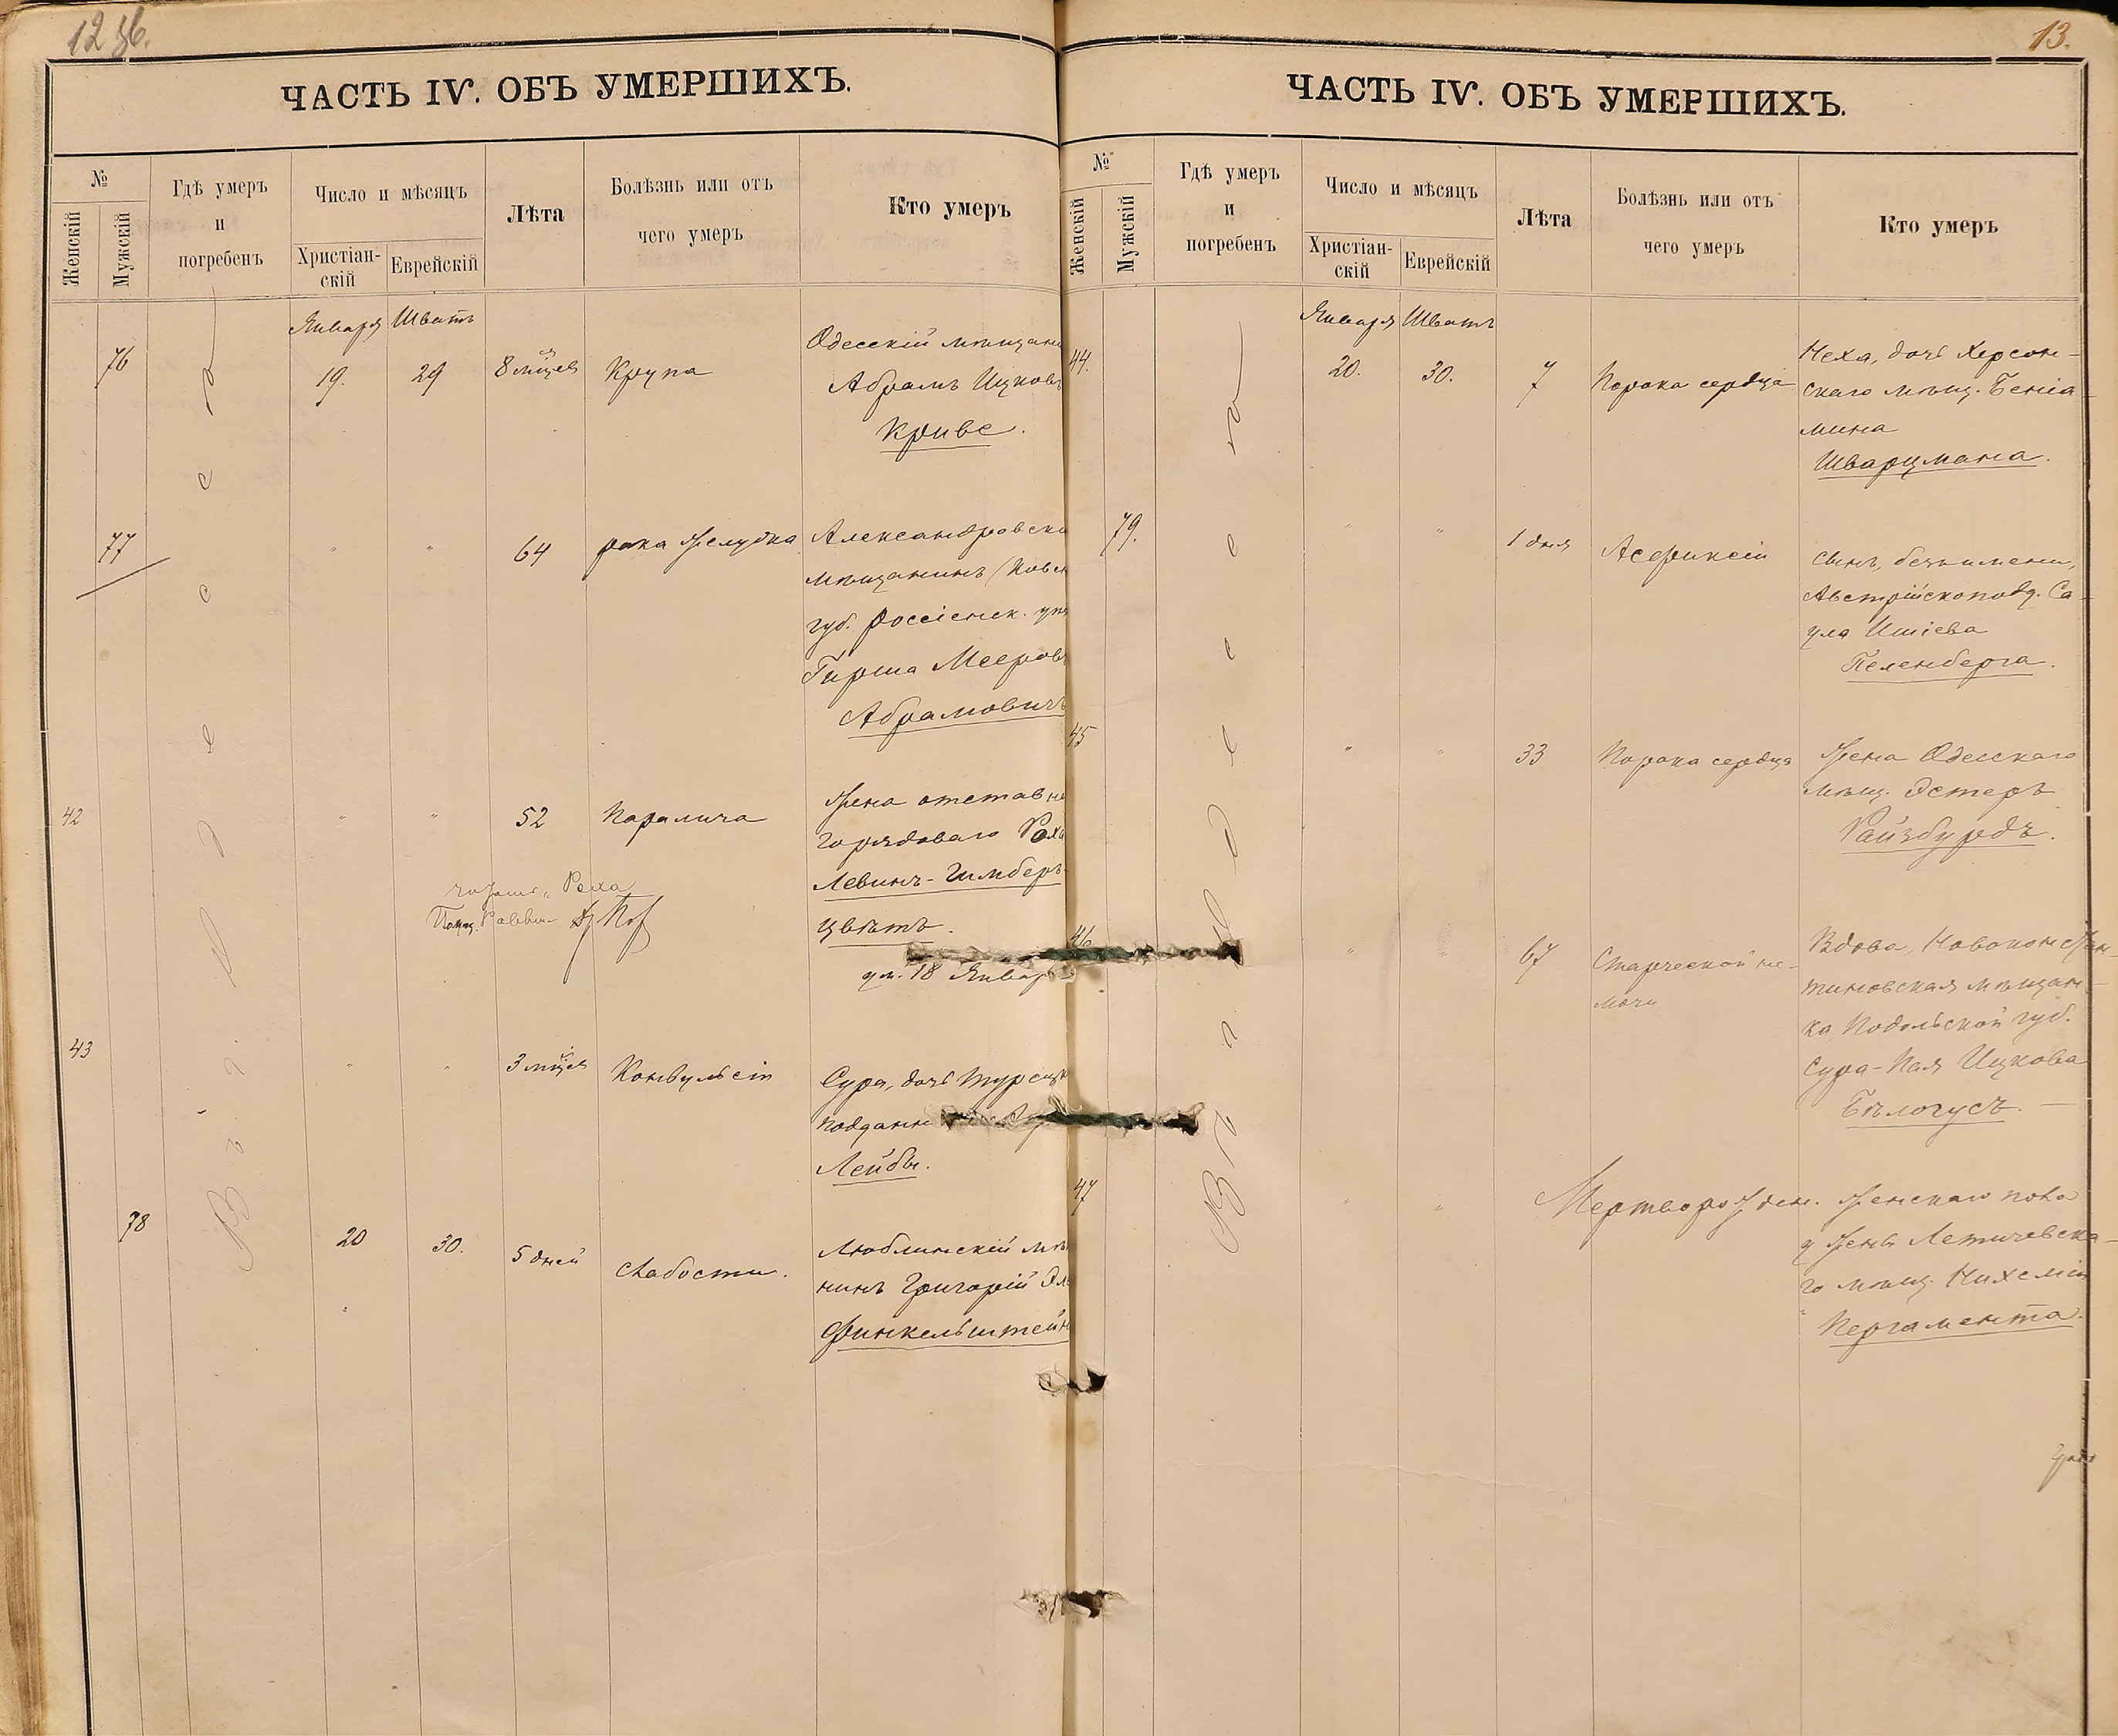 12 об.
ЧАСТЬ IV. ОБЪ УМЕРШИХЪ.
№
Женскій
Мужскій
Гдѣ умеръ
и
погребенъ
Число и мѣсяцъ
Христіан-
скій
Еврейскій
Лѣта
Болѣзнь или отъ
чего умеръ
Кто умеръ
В г. Одессе
Января Шватъ
76 19. 29 8 мѣсяцев Крупа
Одесскій мѣщани
Абрамъ Ицковъ
Кривс.
77 " " 64 рака желудка
Александровски
мѣщанинъ (Ковен
губ. Россіенск. уѣз
Гирша Мееровъ
Абрамовичъ
42 " " 52 Паралича
Жена отставно
го рядоваго Роха
Левинъ-Гимберъ-
цвѣтъ.
ум. 18 Январ
Роха
Раввин
43 " " 3 мѣсяц Конвульсіи
Сура, дочь турецк
подданн
Лейбы.
78 20 30. 5 дней Слабости.
Люблинскій мѣ
нинъ Григорій Эл
Финкельштейн
13.
ЧАСТЬ IV. ОБЪ УМЕРШИХЪ.
№
Женскій
Мужскій
Гдѣ умеръ
и
погребенъ
Число и мѣсяцъ
Христіан-
скій
Еврейскій
Лѣта
Болѣзнь или отъ
чего умеръ
Кто умеръ
Въ г. Одессе
Января Шватъ
44. 20. 30. 7 Порока сердца
Неха, дочь Херсон-
скаго мѣщ. Беніа-
мина
Шварцмана.
79. " " 1 дня Асфиксіи
сынъ, безъ имени,
Австрійскоподд. Са-
ула Ишіева
Геленберга.
45 " " 33 Порока сердца
Жена Одесскаго
мѣщ. Эстеръ
Райзбурдъ.
46 " " 67 Старческой не-
мочи
Вдова, Новоконстан-
тиновская мѣщан-
ка Подольской губ.
Сура-Пая Ицкова
Бѣлогусъ.
47 " " Мертворожден. женскаго пола
у жены Летичевска-
го мѣщ. Нихеміи
Пергамента.